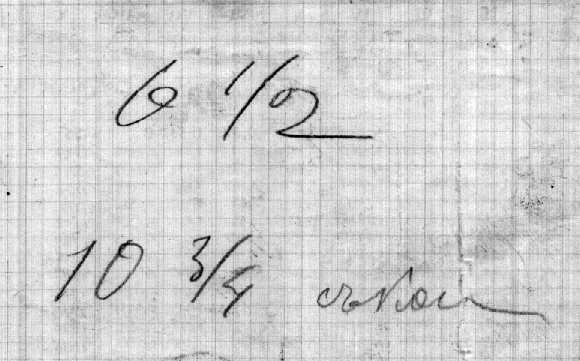 6 1/2
10 3/4